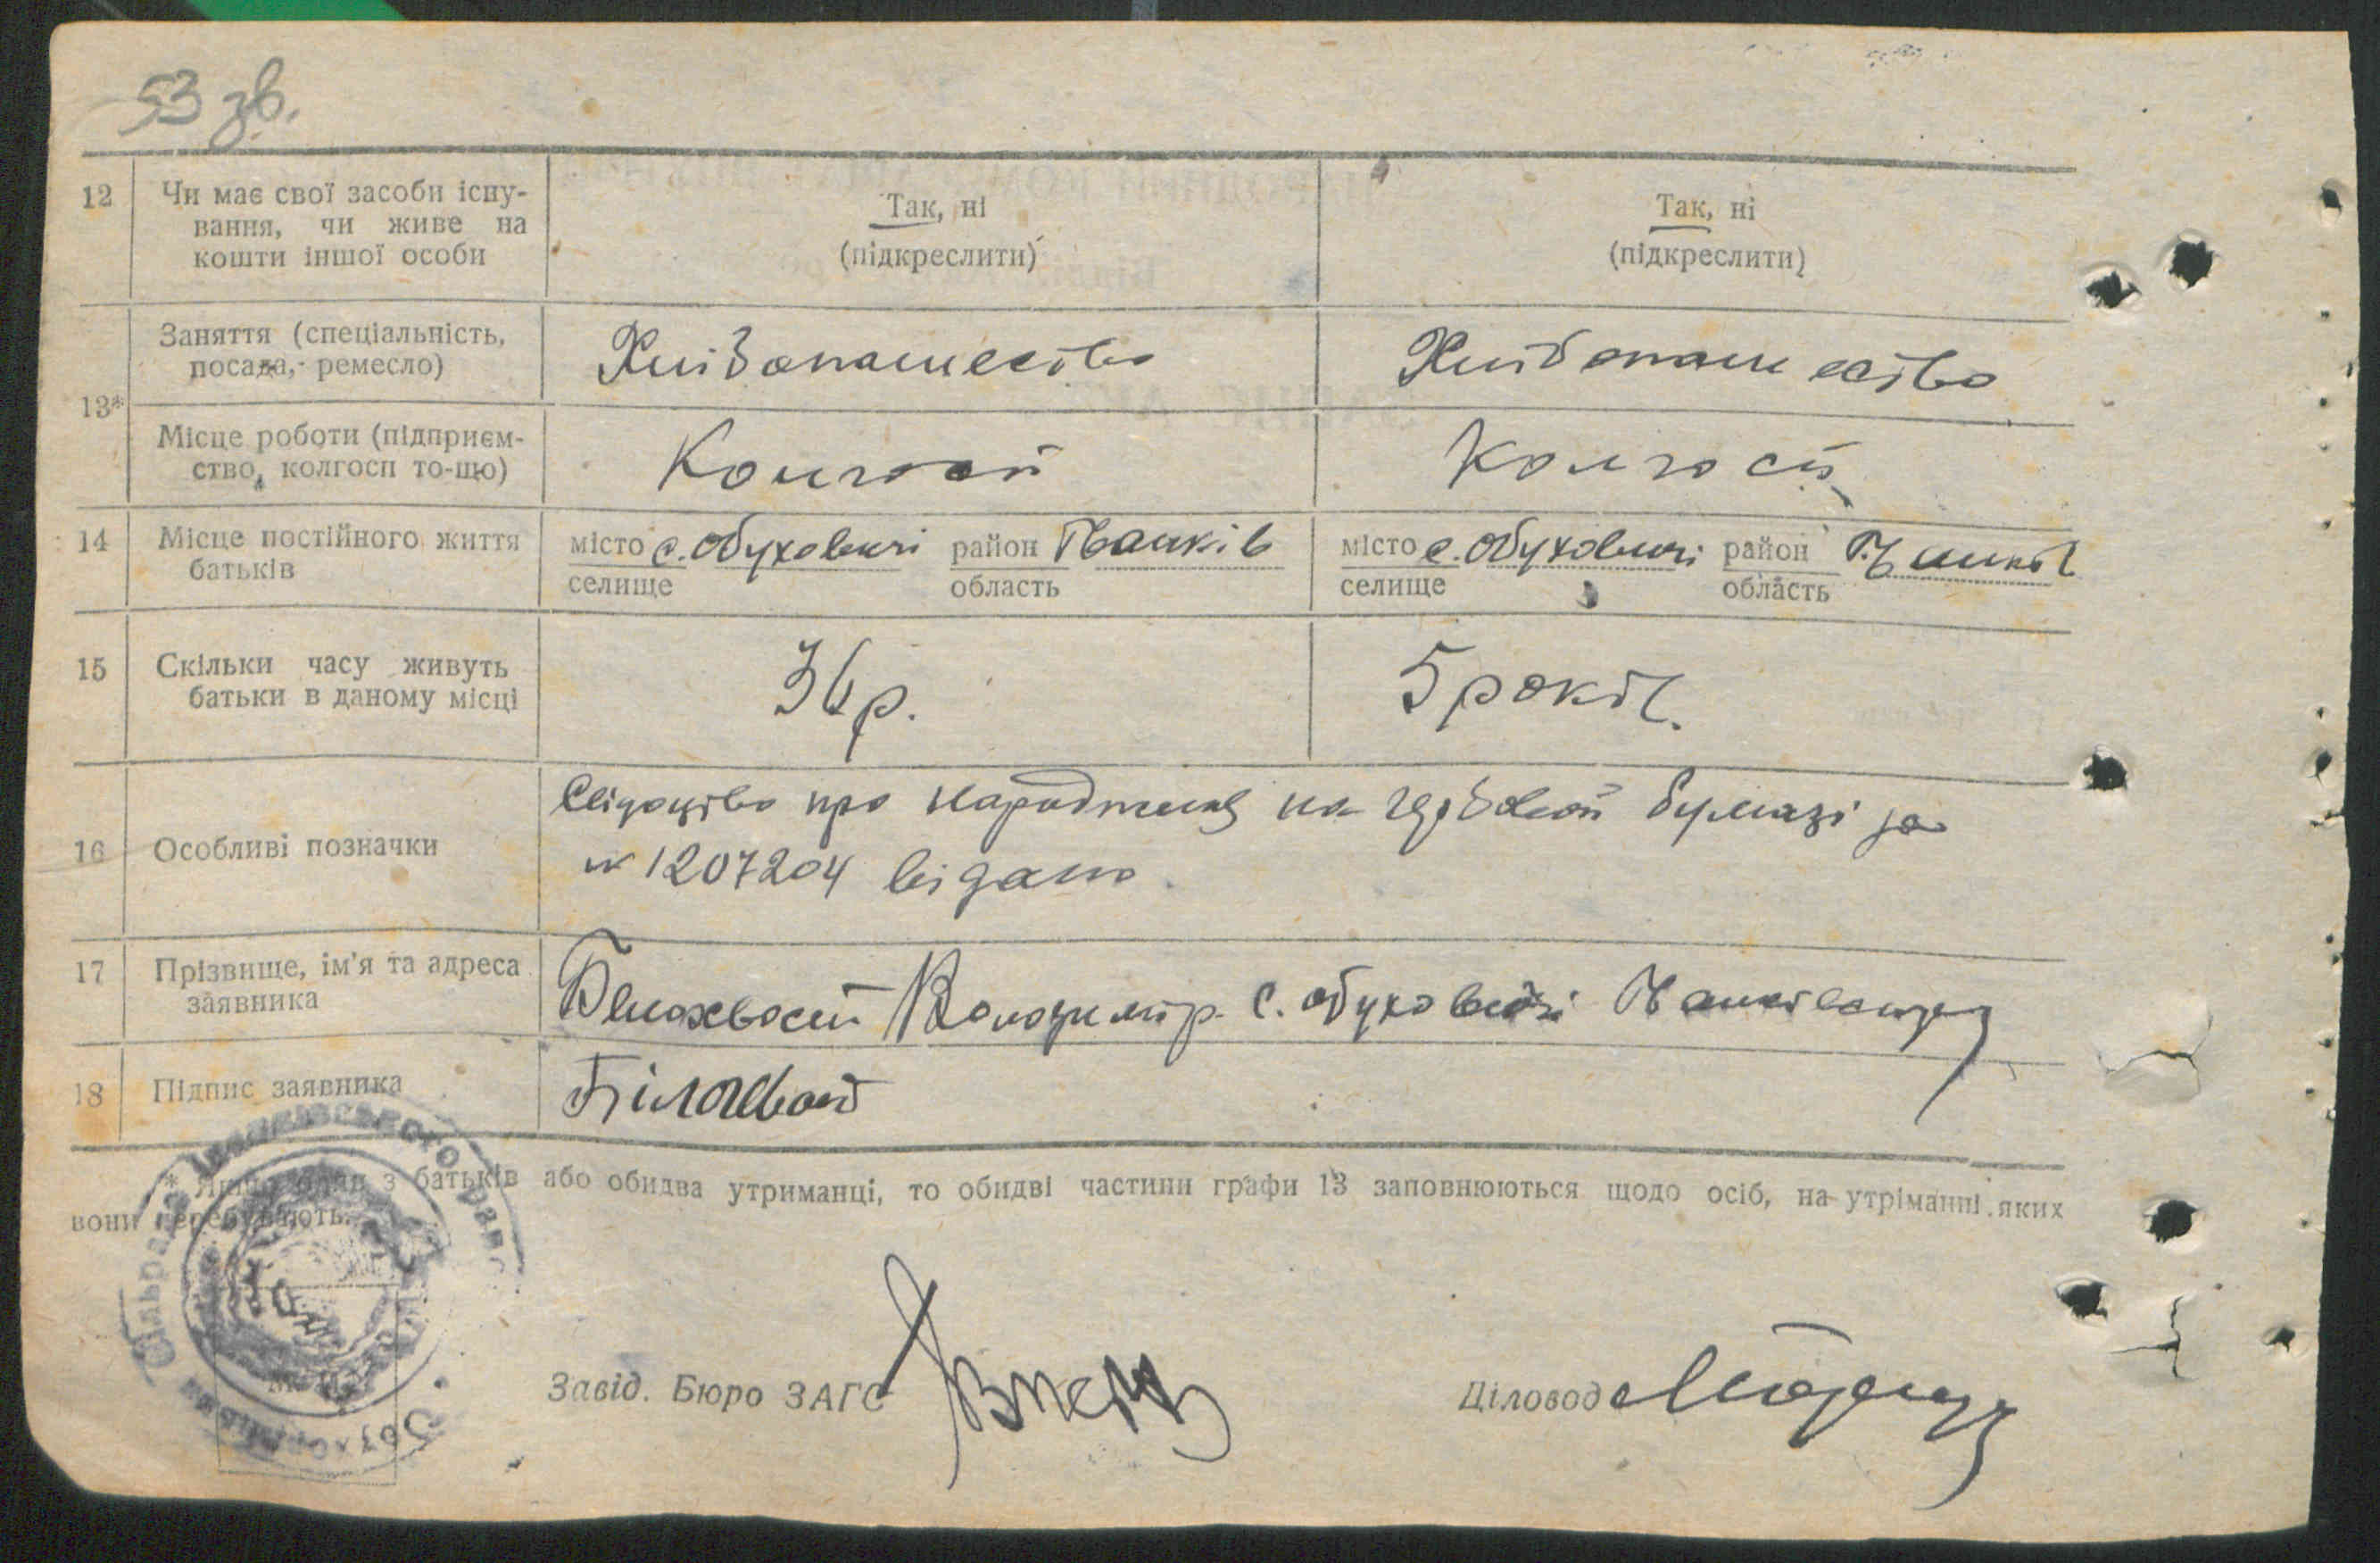 53 зв.
12 Чи має свої засоби існу- Так, ні Так, ні
вання, чи живе на
кошти іншої особи (підкреслити) (підкреслити)
Заняття (спеціальність, Хлібопашество Хлібопашество
посада, ремесло)
13*
Місце роботи (підприєм- Колгосп Колгосп
ство, колгосп то-що)
14 Місце постійного життя місто с. Обуховичі район Іванків місто с. Обуховичі район Іванків
батьків селище область селище область
15 Скільки часу живуть 36 р. 5 років.
батьки в даному місці
Свідоцтво про народження на гербовой бумазі за
16 Особливі позначки № 1207204 видано.
17 Прізвище, ім'я та адреса Білохвост Володимир с. Обуховичі
заявника
18 Підпис заявника Білохвост
* Якщо один з батьків або обидва утриманці, то обидві частини графи 13 заповнюються щодо осіб, на утріманні яких
вони перебувають.
Завід. Бюро ЗАГС Діловод